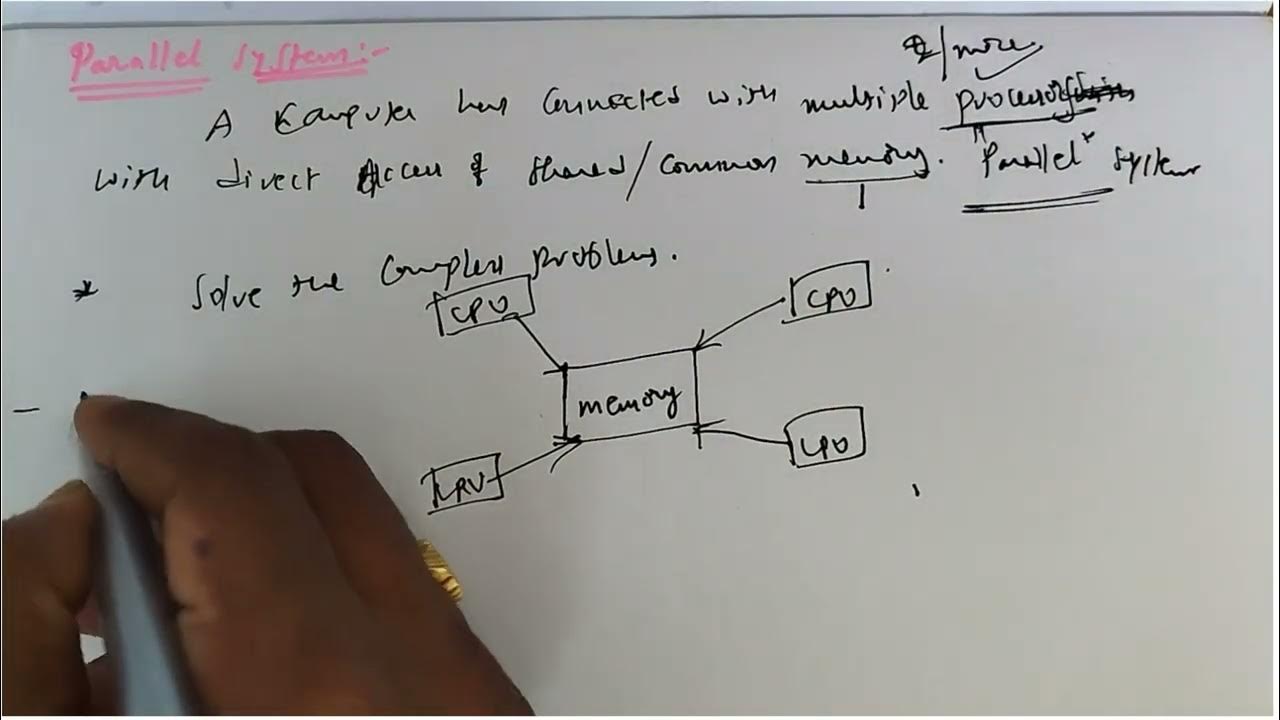 Parallel System:-
2/more
A Computer has Connected with multiple processors
with direct Access of Shared/Common memory. "Parallel" System
* Solve the Complex problems.
CPU CPU
memory
CPU CPU
-